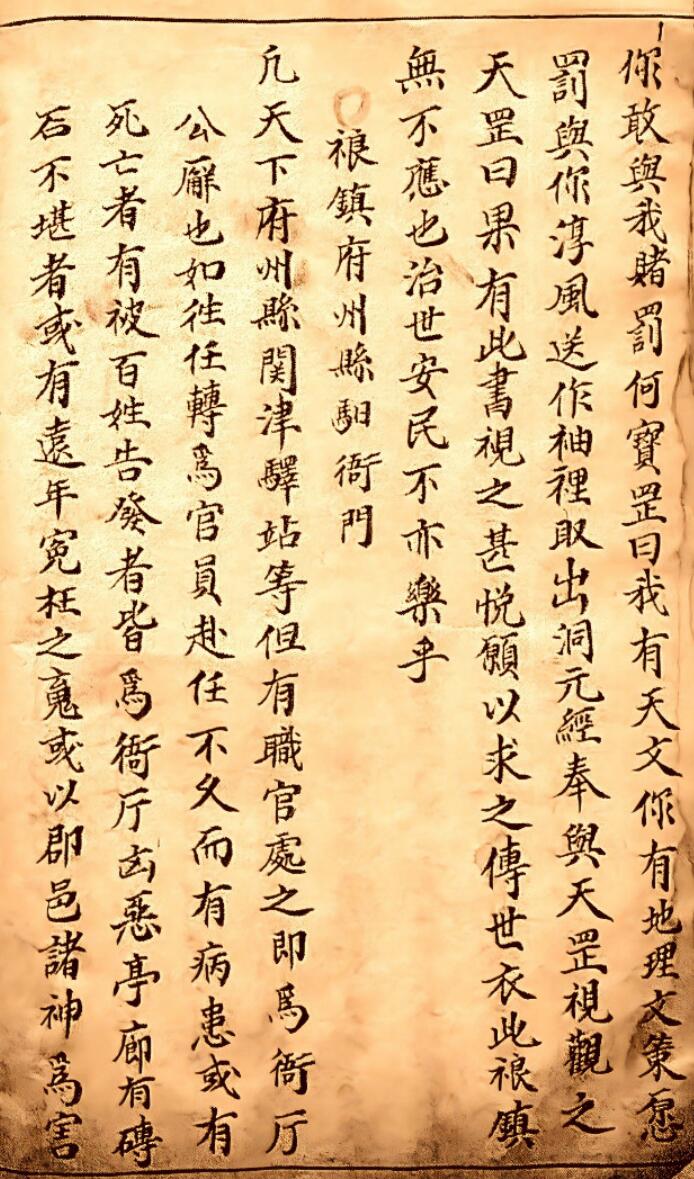 你敢與我賭罰何寶罡曰我有天文你有地理文策愿
罰與你淳風送作袖裡取出洞元經奉與天罡視觀之
天罡曰果有此書視之甚悅願以求之傳世衣此禳鎮
無不應也治世安民不亦樂乎
禳鎮府州縣馹衙門
凢天下府州縣関津驛站等但有職官處之即爲衙厅
公廨也如徃任轉爲官員赴任不久而有病患或有
死亡者有被百姓告發者皆爲衙厅㐫惡亭廊有磚
石不堪者或有遠年寃枉之鬼或以郡邑諸神爲害